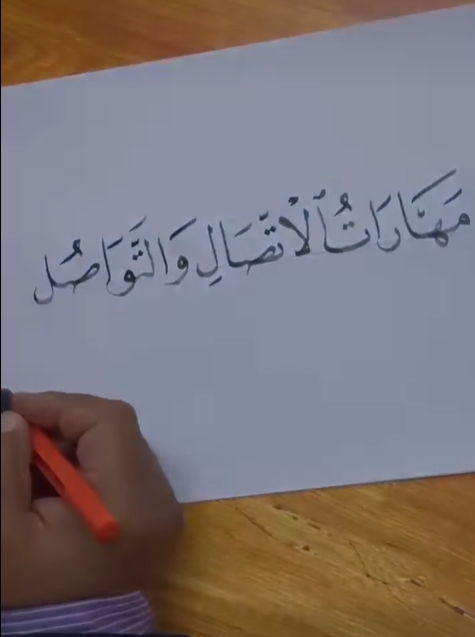 مَهَارَاتُ ٱلْاتِّصَالِ وَالتَّوَاصُل